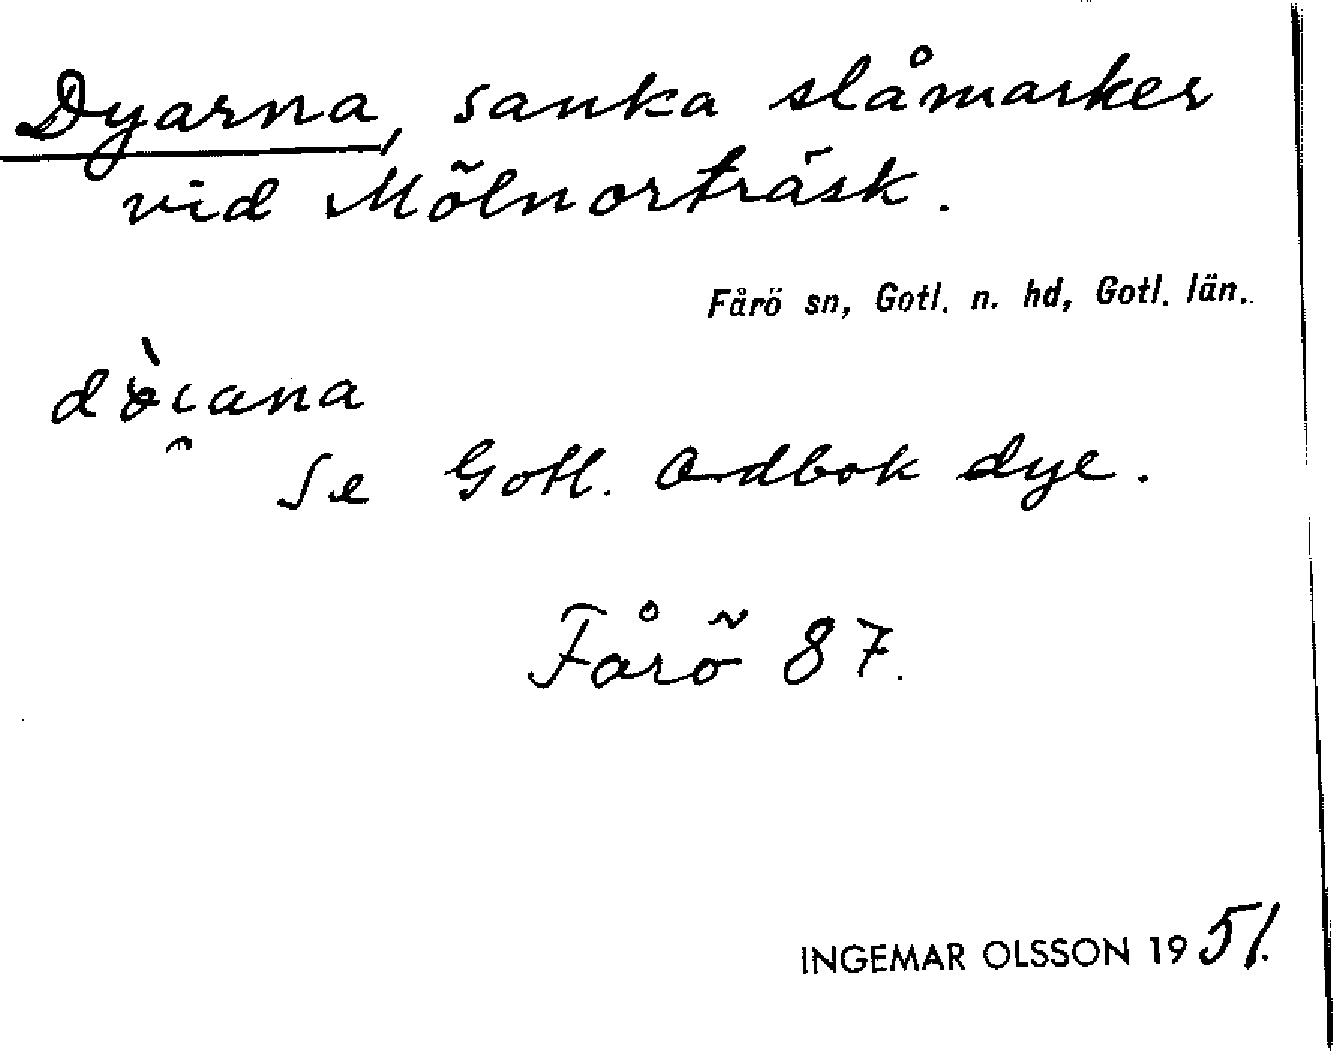 Dyarna, sanka slåmarker
vid Mölnorträsk.
Fårö sn, Gotl. n. hd, Gotl. län.
Se Gotl. Ordbok dye.
Fårö 87.
INGEMAR OLSSON 1951.